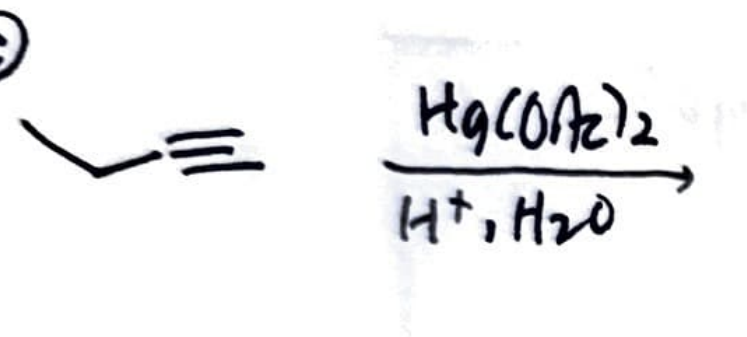 Hg(OAc)2
H+, H2O